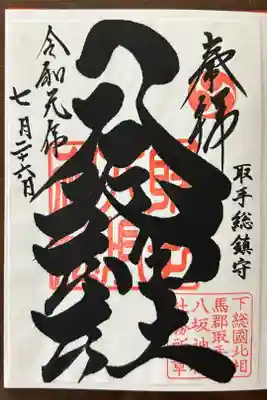 奉拝
取手総鎮守
下総國北相
馬郡取手
八坂神
社務所章
八坂神社
令和元年
七月二十六日